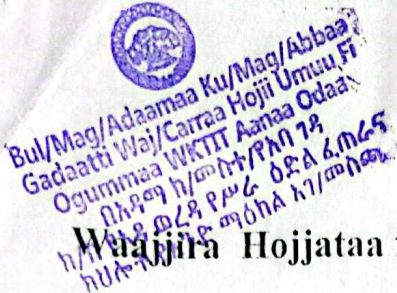 Bul/Mag/Adaamaa Ku/Mag/Abbaa
Gadaatti Waj/Carraa Hojii Umuu Fi
Ogummaa WKTIT Aanaa Odaa
በአዳማ ከ/መስተ/የአባ ገዳ
ወረዳ የሥራ ዕድል ፈጠራና
ማዕከል አገ/መስጫ
Waajjira Hojjataa